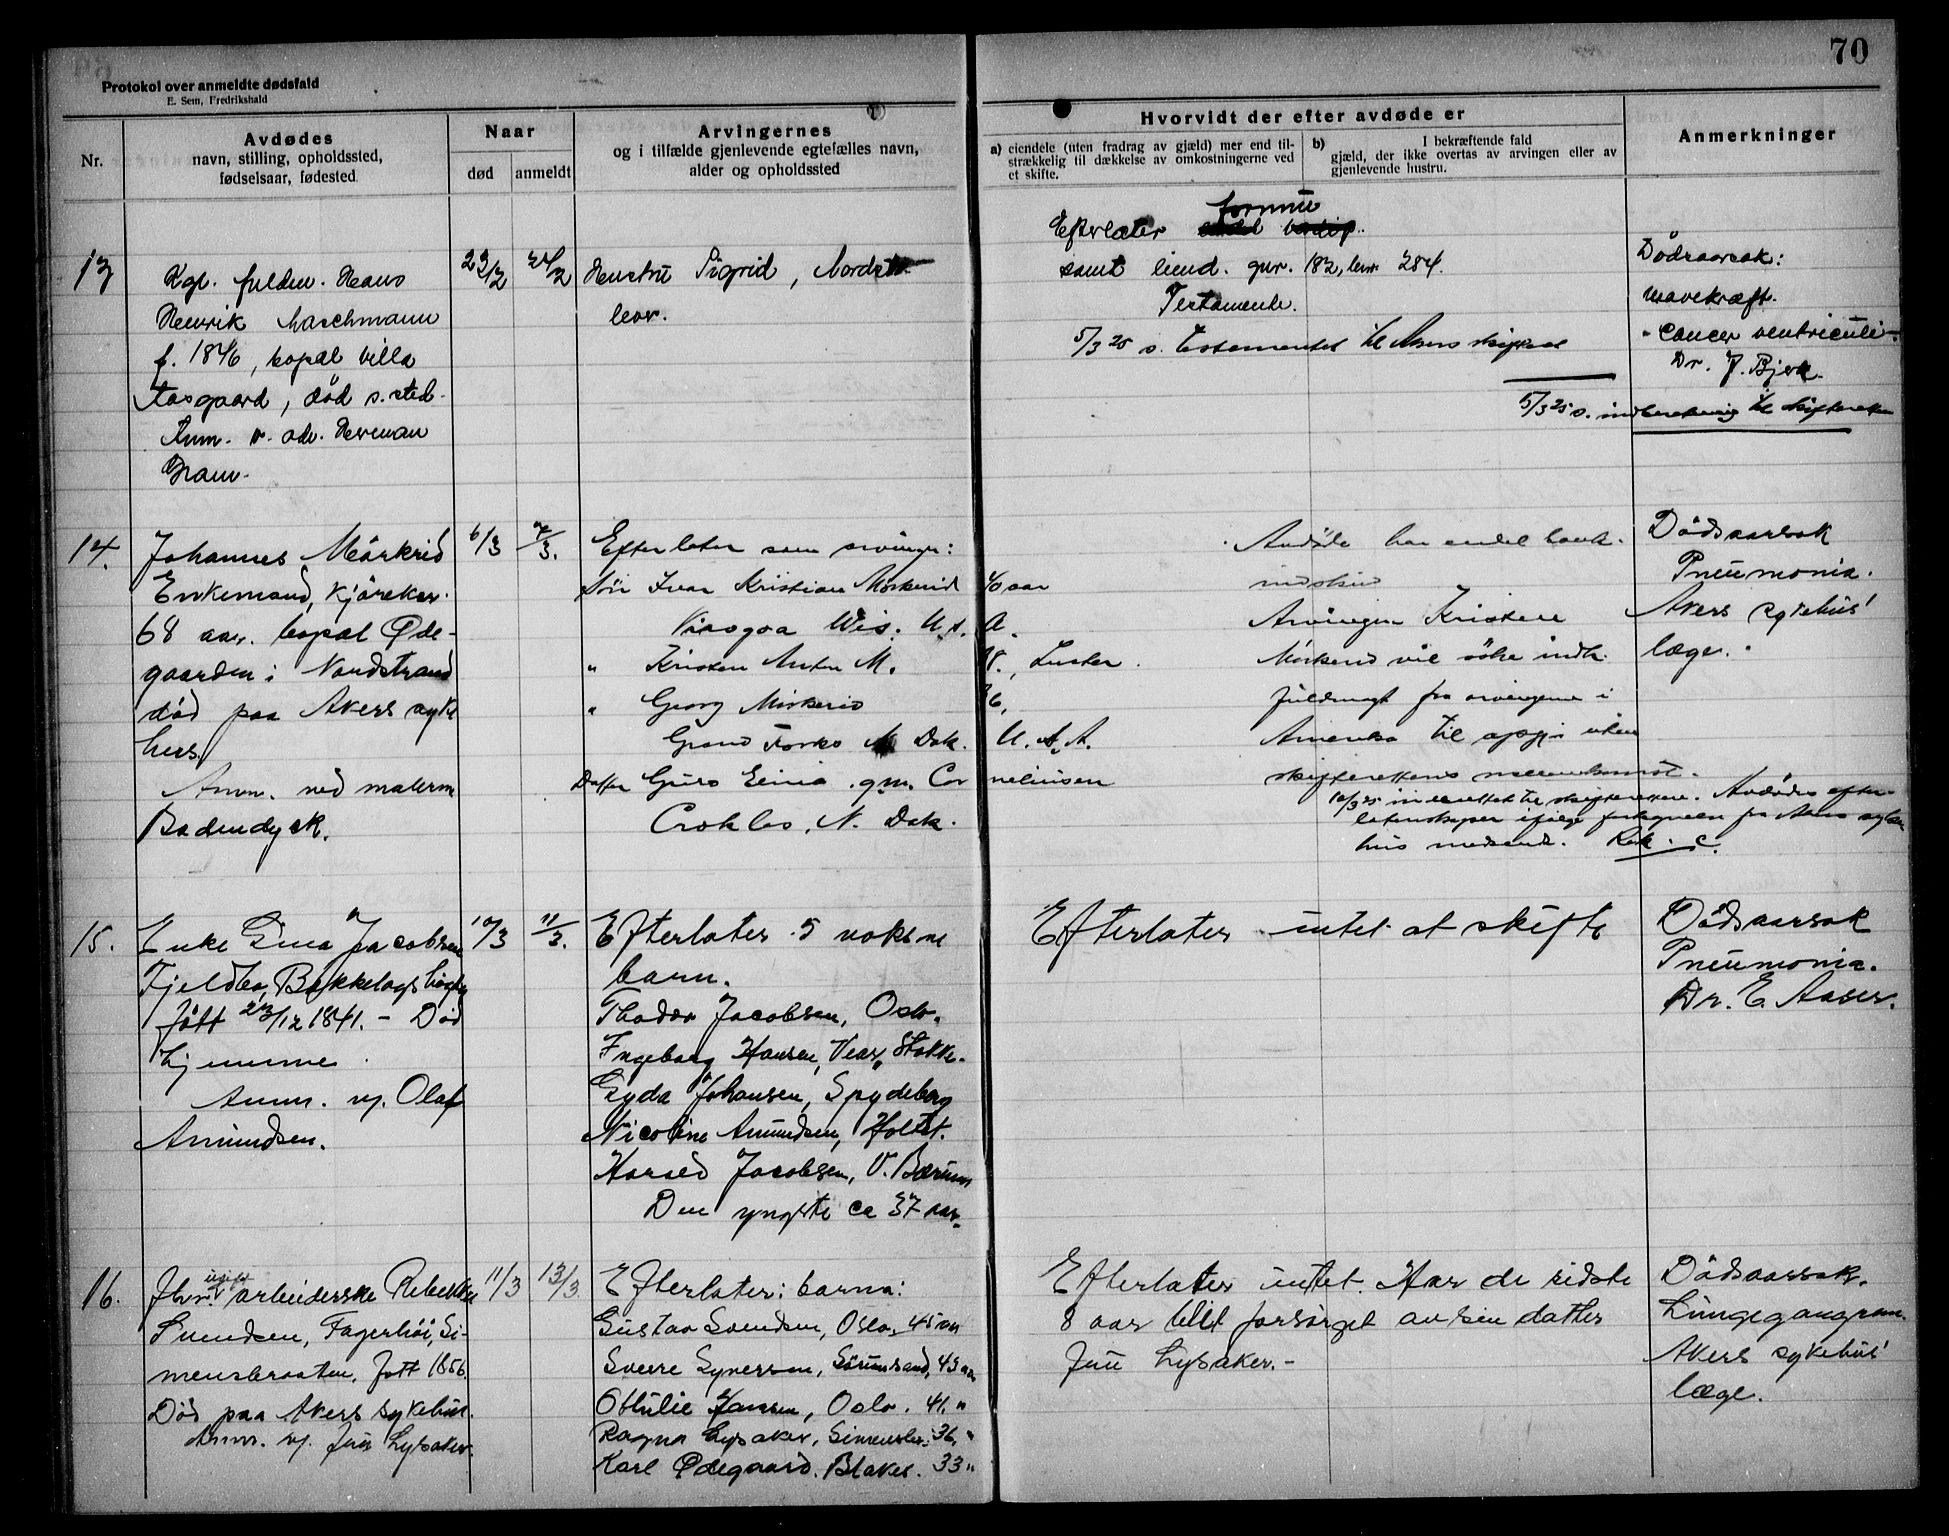 70
Protokol over anmeldte dødsfald
E. Sem, Fredrikshald
Nr.
Avdødes
navn, stilling, opholdssted,
fødselsaar, fødested
Naar
død
anmeldt
Arvingernes
og i tilfælde gjenlevende egtefælles navn,
alder og opholdssted
Hvorvidt der efter avdøde er
a) eiendele (uten fradrag av gjæld) mer end til-
strækkelig til dækkelse av omkostningerne ved
et skifte.
b) I bekræftende fald
gjæld, der ikke overtas av arvingen eller av
gjenlevende hustru.
Anmerkninger
13
Kgl. fuldm. Hans
Henrik Maschmann
f. 1846, bopæl villa
Aasgaard, død s. sted.
Anm. v. adv. Herman
Gram.
23/2
24/2
Hustru Sigrid, Nordst
formue
Efterlater
samt eiend. gnr. 182, bnr. 284.
Testamente.
5/3 25 s. testamentet til Akers skifteret
Dødsaarsak:
Mavekræft.
"Cancer ventriculi"
Dr. J. Bjerk.
5/3 25 s. indberetning til skifteretten
14.
Johannes Mørkrid
Enkemand, kjørekar.
68 aar. bopæl Øde-
gaarden i Nordstrand
død paa Akers syke
hus.
Anm. ved malerm
Badendyck.
6/3
7/3.
Efterlater som arvinger:
Søn Ivar Kristian Mørkerid 40 aar
Wis. U.S.A.
" Kristen Anton M. , Luster.
" Georg Mørkerid
Grand Forks N Dak. U.S.A.
Datter Guro Eivia gm. Corneliusen
N. Dak.
Avdøde har endel bank-
indskud
Arvingen Kristen
Mørkerid vil søke indh.
fuldmagt fra arvingerne i
Amerika til opgjør uten
skifterettens mellemkomst.
10/3 25 indberettet til skifteretten. Avdødes efter-
latenskaper ifølge fortegnelse fra Akers syke
hus medsendt.
Dødsaarsak
Pneumonia.
Akers sykehus'
læge.
15.
Enke Gina Jacobsen
Fjeldbo, Bækkelagshøgda
født 23/12 1841. - Død
hjemme.
Anm. vf. Olaf
Amundsen.
10/3
11/3.
Efterlater 5 voksne
barn.
Thodor Jacobsen, Oslo.
Ingeborg Hansen, Vear, Stokke.
Gyda Johansen, Spydeberg
Nicoline Amundsen, Holtet.
Harald Jacobsen, V. Bærum
Den yngste ca 37 aar.
Efterlater intet at skifte
Dødsaarsak
Pneumonia.
Dr. E. Aaser.
16.
ugift
arbeiderske Rebekka
Svendsen, Fagerhøi, Si-
mensbraaten, født 1856.
Død paa Akers sykehus.
Anm. vf. frue Lysaker.
11/3
13/3
Efterlater: barna:
Gustav Svendsen, Oslo, 45 aar
Sverre Syversen, Sørumsand, 43 aar
Othilie Jansen, Oslo. 41. "
Ragna Lysaker, Simensbr. 36. "
Karl Ødegaard. Blaker. 33 "
Efterlater intet. Har de sidste
8 aar blit forsørget av sin datter
Fru Lysaker. -
Dødsaarsak.
Lungegangræn.
Akers sykehus'
læge.